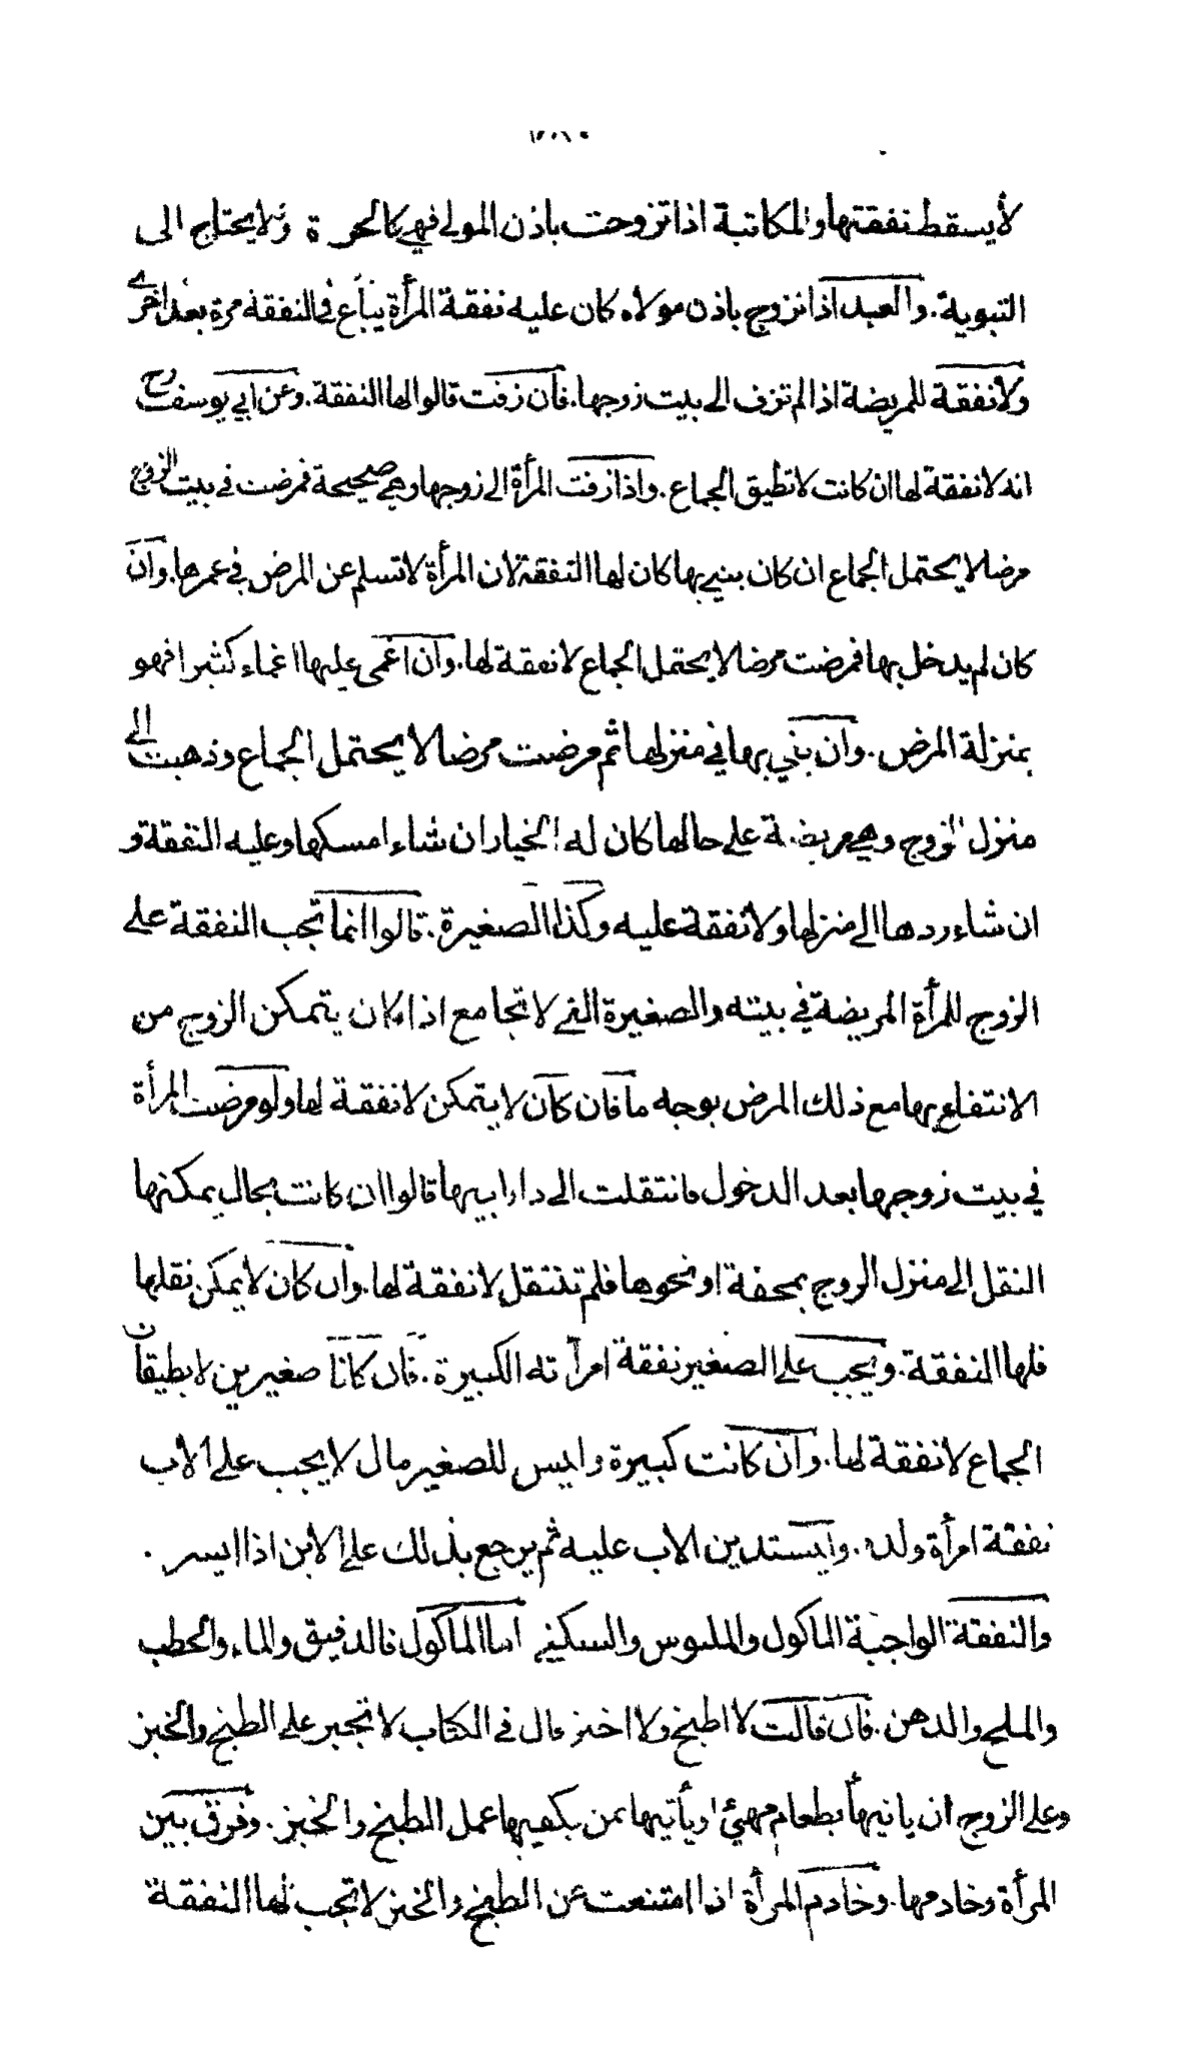 لا يسقط نفقتها والمكاتبة اذا تزوجت باذن المولى فهي كالحرة ولا يحتاج الى
التبوية. والعبد اذا تزوج باذن مولاه كان عليه نفقة المرأة يباع في النفقة مرة بعد اخرى
ولا نفقة للمريضة اذا لم تزف الى بيت زوجها. فان زفت قالوا لها النفقة. وعن ابي يوسف رح
انه لا نفقة لها ان كانت لا تطيق الجماع. واذا زفت المرأة الى زوجها وهي صحيحة فمرضت في بيت الزوج
مرضا لا يحتمل الجماع ان كان بنى بها كان لها النفقة لان المرأة لا تسلم عن المرض في عمرها. وان
كان لم يدخل بها فمرضت مرضا لا يحتمل الجماع لا نفقة لها. وان اغمى عليها اغماء كثيرا فهو
بمنزلة المرض. وان بني بها في منزلها ثم مرضت مرضا لا يحتمل الجماع وذهبت الى
منزل الزوج وهي مريضة على حالها كان له الخيار ان شاء امسكها وعليه النفقة و
ان شاء ردها الى منزلها ولا نفقة عليه وكذا الصغيرة. قالوا انما تجب النفقة على
الزوج للمرأة المريضة في بيته والصغيرة التي لا تجامع اذا كان يتمكن الزوج من
الانتفاع بها مع ذلك المرض بوجه ما فان كان لا يتمكن لا نفقة لها ولو مرضت المرأة
في بيت زوجها بعد الدخول فانتقلت الى دار ابيها قالوا ان كانت بحال يمكنها
النقل الى منزل الزوج بمحفة او نحوها فلم تنتقل لا نفقة لها. وان كان لا يمكن نقلها
فلها النفقة. ويجب على الصغير نفقة امرأته الكبيرة. فان كانا صغيرين لا يطيقان
الجماع لا نفقة لها. وان كانت كبيرة وليس للصغير مال لا يجب على الاب
نفقة امرأة ولده. ويستدين الاب عليه ثم يرجع بذلك على الابن اذا ايسر.
والنفقة الواجبة الماكول والملبوس والسكنى اما الماكول فالدقيق والماء والحطب
والملح والدهن. فان قالت لا اطبخ ولا اخبز قال في الكتاب لا تجبر على الطبخ والخبز
وعلى الزوج ان ياتيها بطعام مهيئ او يأتيها بمن يكفيها عمل الطبخ والخبز. وفرق بين
المرأة وخادمها. وخادم المرأة اذا امتنعت عن الطبخ والخبز لا تجب لها النفقة